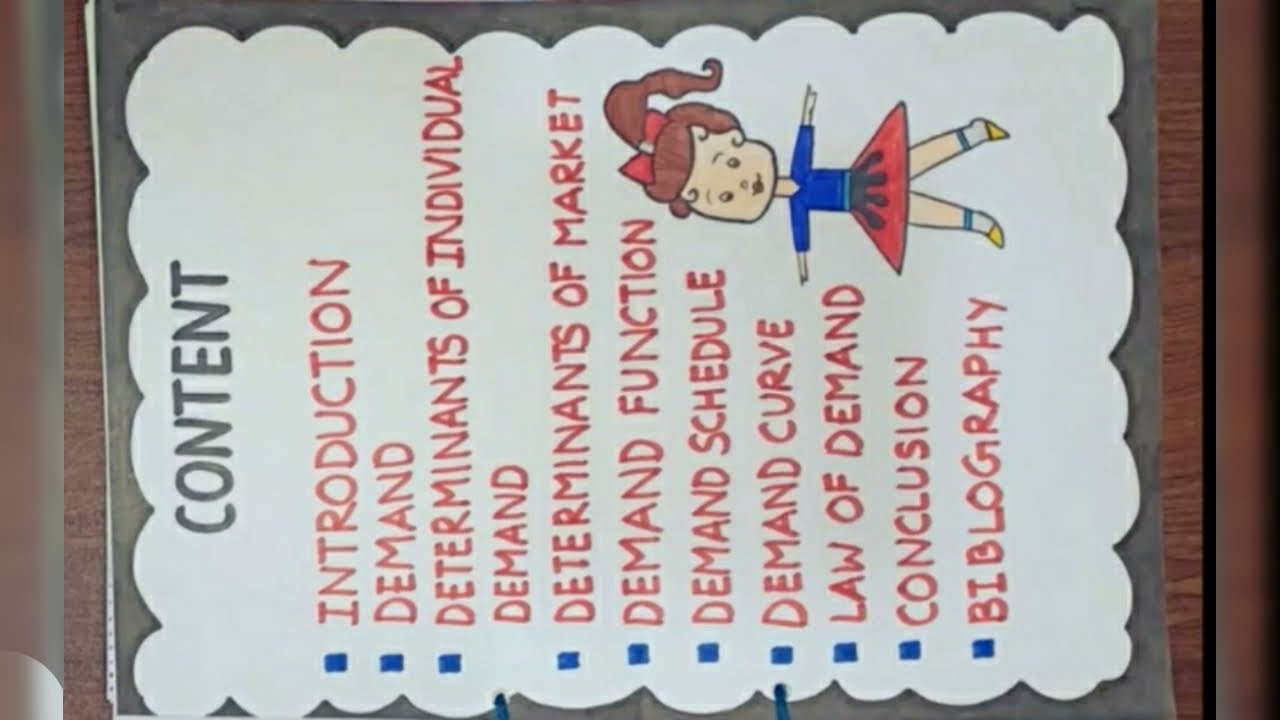 CONTENT
INTRODUCTION
DEMAND
DETERMINANTS OF INDIVIDUAL
DEMAND
DETERMINANTS OF MARKET
DEMAND FUNCTION
DEMAND SCHEDULE
DEMAND CURVE
LAW OF DEMAND
CONCLUSION
BIBLOGRAPHY